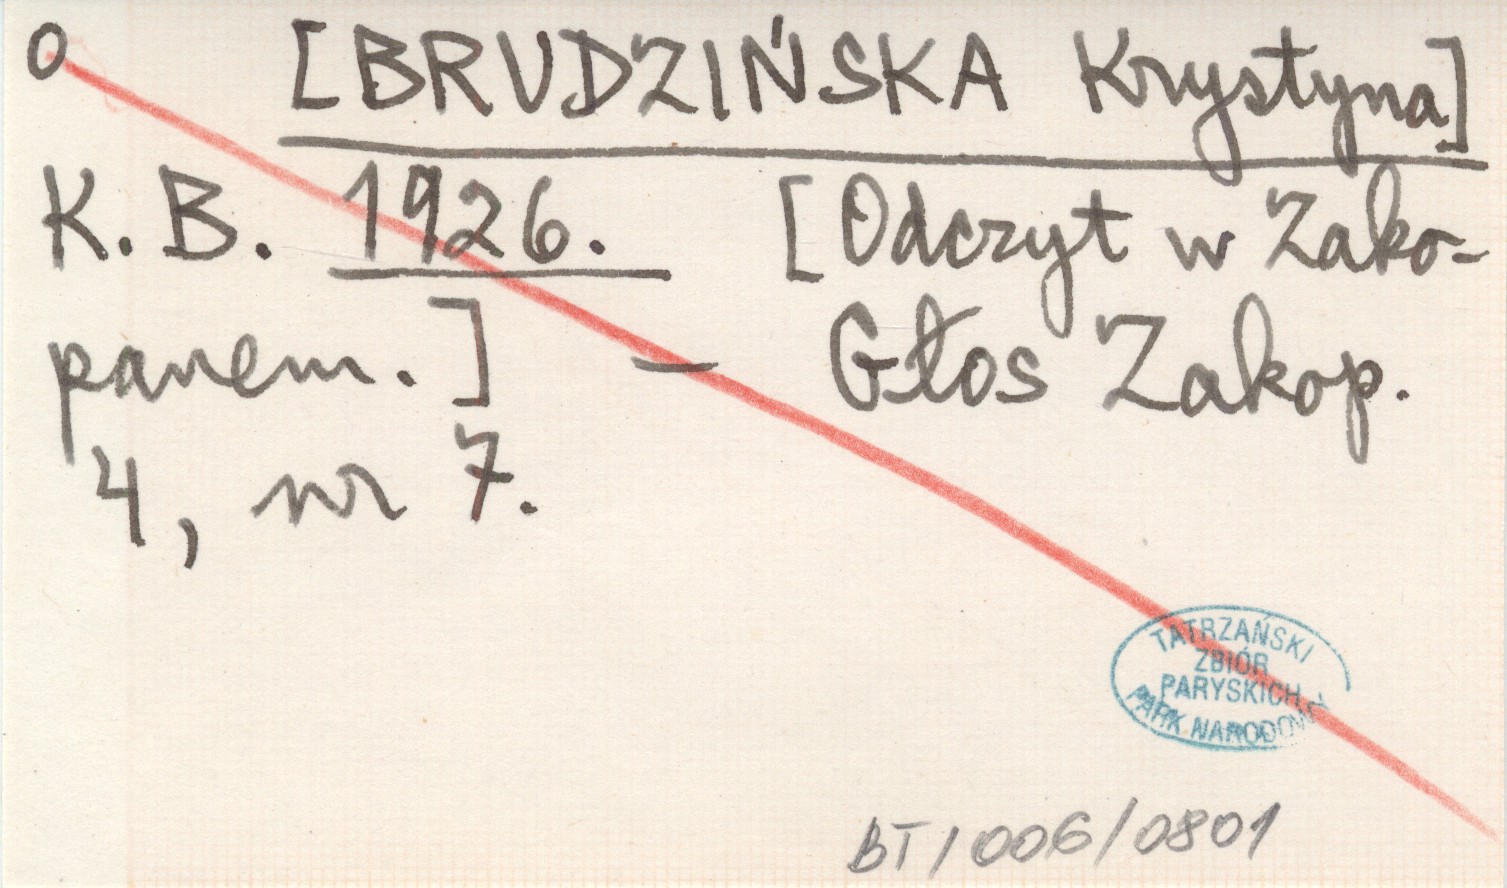 O [BRUDZIŃSKA Krystyna]
K. B. 1926. [Odczyt w Zako-
panem.] — Głos Zakop.
4, nr 7.
TATRZAŃSKI
ZBIÓR
PARYSKICH
PARK NARODOWY
BT/006/0801